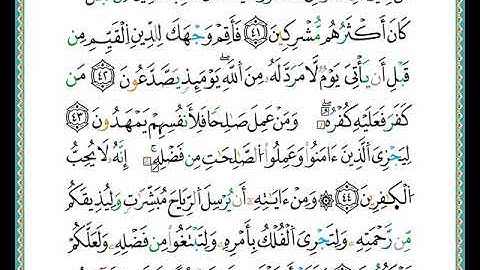 كَانَ أَكْثَرُهُم مُّشْرِكِينَ ٤١ فَأَقِمْ وَجْهَكَ لِلدِّينِ الْقَيِّمِ مِن
قَبْلِ أَن يَأْتِيَ يَوْمٌ لَّا مَرَدَّ لَهُ مِنَ اللَّهِ ۖ يَوْمَئِذٍ يَصَّدَّعُونَ ٤٢ مَن
كَفَرَ فَعَلَيْهِ كُفْرُهُ ۖ وَمَنْ عَمِلَ صَالِحًا فَلِأَنفُسِهِمْ يَمْهَدُونَ ٤٣
لِيَجْزِيَ الَّذِينَ ءَامَنُوا وَعَمِلُوا الصَّالِحَاتِ مِن فَضْلِهِ ۚ إِنَّهُ لَا يُحِبُّ
الْكَافِرِينَ ٤٤ ۞ وَمِنْ ءَايَاتِهِ أَن يُرْسِلَ الرِّيَاحَ مُبَشِّرَاتٍ وَلِيُذِيقَكُم
مِّن رَّحْمَتِهِ وَلِتَجْرِيَ الْفُلْكُ بِأَمْرِهِ وَلِتَبْتَغُوا مِن فَضْلِهِ وَلَعَلَّكُمْ